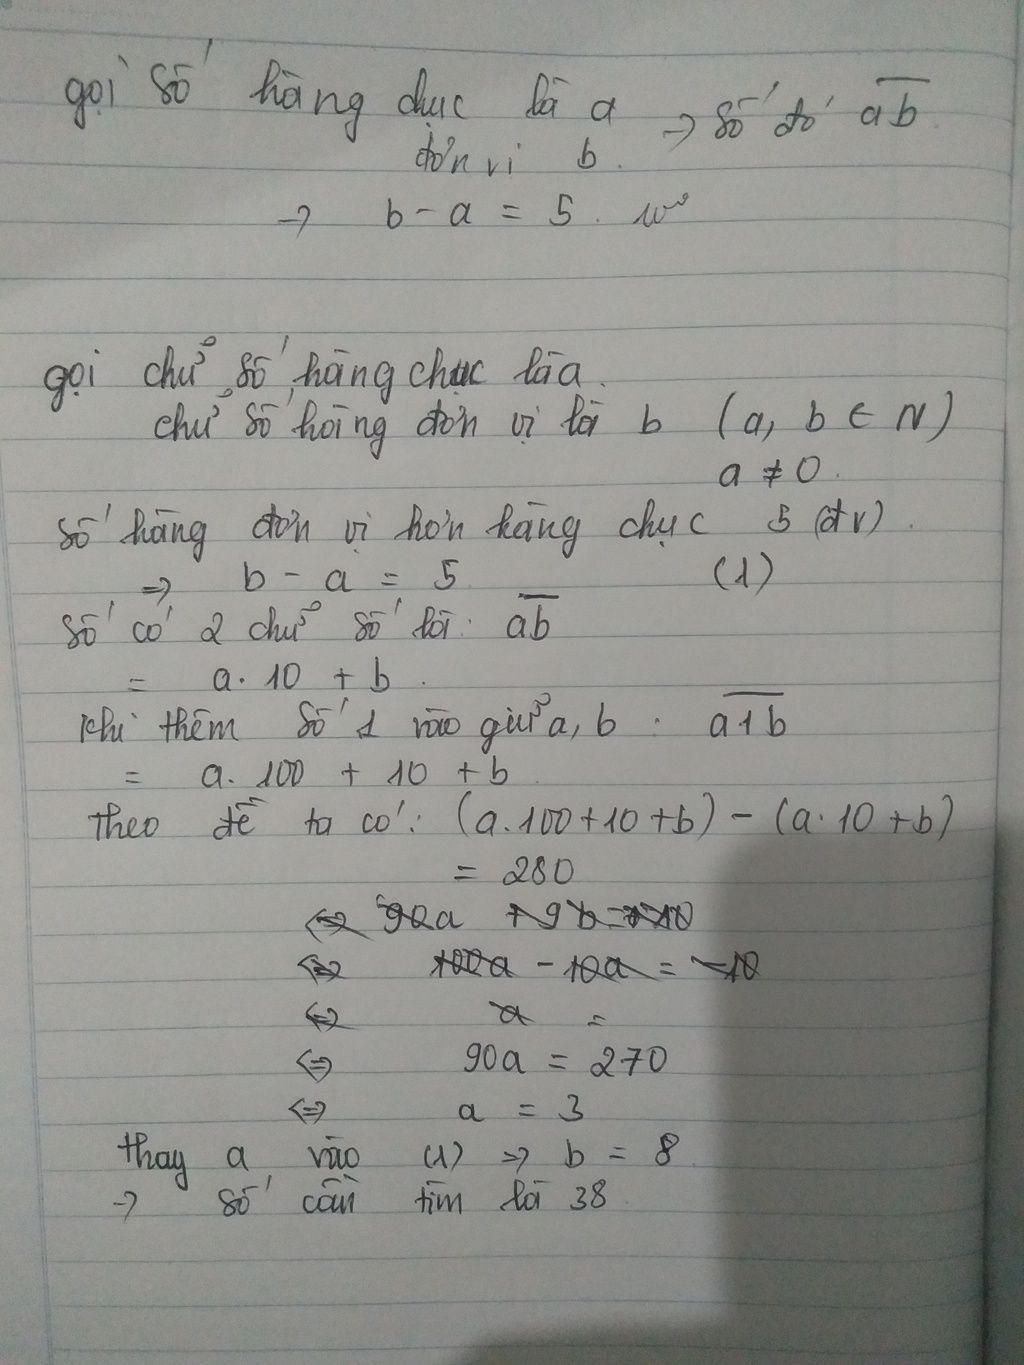 gọi số hàng chục là a → số đó ab
đơn vị b.
→ b - a = 5.
gọi chữ số hàng chục là a.
chữ số hàng đơn vị là b (a, b ∈ N)
a ≠ 0.
số hàng đơn vị hơn hàng chục 5 (đv).
=> b - a = 5 (1)
số có 2 chữ số là: ab
= a. 10 + b.
khi thêm số 1 vào giữa a, b : a1b
= a. 100 + 10 + b
theo đề ta có: (a.100+10+b) - (a.10+b)
= 280
<=> 90a + 9b = 
<=> 100a - 10a = -10
<=> a =
<=> 90a = 270
<=> a = 3
thay a vào (1) => b = 8
→ số cần tìm là 38